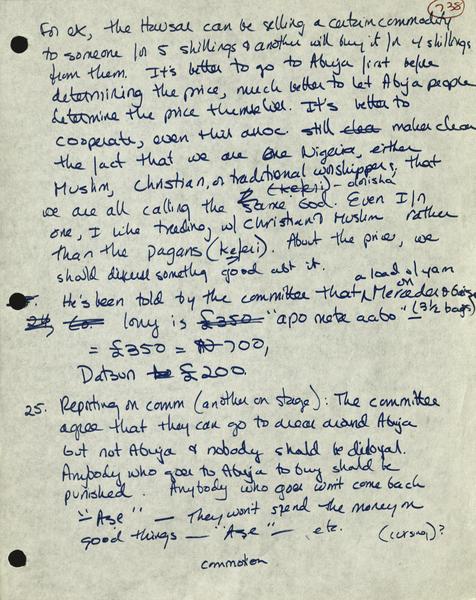 238
For ex, the Hausas can be selling a certain commodity
to someone for 5 shillings & another will buy it for 4 shillings
from them. It's better to go to Abuja first before
determining the price, much better to let Abuja people
determine the price themselves. It's better to
cooperate, even this assoc. still clea makes clear
the fact that we are one Nigeria, either
Muslim, Christian, or traditional worshippers, that
(keferi) - orisha
we are all calling the same God. Even I for
one, I like trading w/ Christian & Muslim rather
than the pagans (keferi). About the price, we
should discuss something good abt it.
a load of yam
He's been told by the committee that, on Mercedes
long is £350 "apo meta aabo" - (3½ bags)
= £350 = ₦700,
Datsun £200.
25. Reporting on comm (another on stage): The committee
agree that they can go to areas around Abuja
but not Abuja & nobody should be disloyal.
Anybody who goes to Abuja to buy should be
punished. Anybody who goes won't come back
— "Aṣe" — They won't spend the money on
good things — "Aṣe" — etc. (cursing)?
commotion